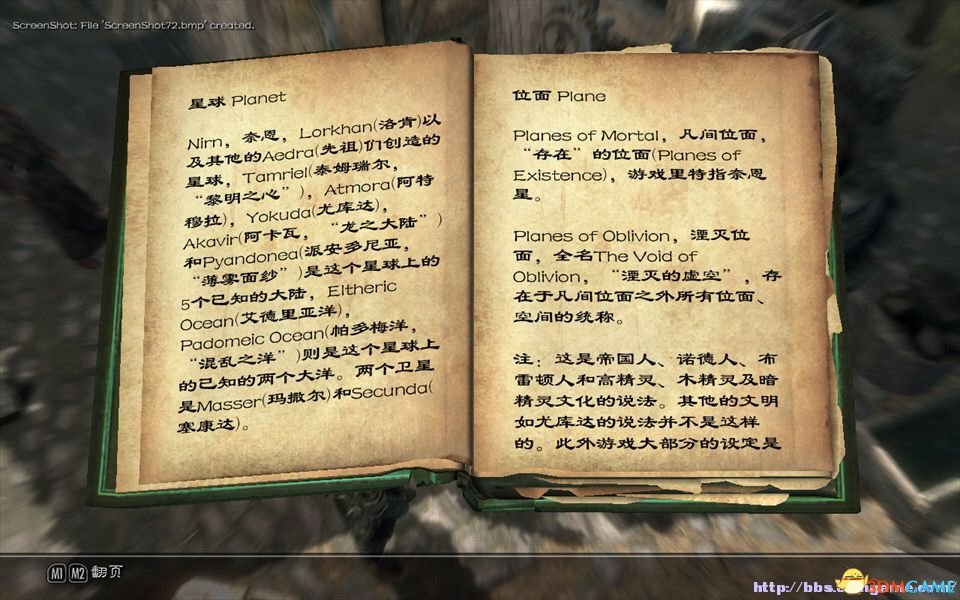 ScreenShot: File 'ScreenShot72.bmp' created.
星球 Planet
Nirn，奈恩，Lorkhan(洛肯)以
及其他的Aedra(先祖)们创造的
星球，Tamriel(泰姆瑞尔，
“黎明之心”)，Atmora(阿特
穆拉)，Yokuda(尤库达)，
Akavir(阿卡瓦，“龙之大陆”)
和Pyandonea(派安多尼亚，
“薄雾面纱”)是这个星球上的
5个已知的大陆，Eltheric
Ocean(艾德里亚洋)，
Padomeic Ocean(帕多梅洋，
“混乱之洋”)则是这个星球上
的已知的两个大洋。两个卫星
是Masser(玛撒尔)和Secunda(
塞康达)。
位面 Plane
Planes of Mortal，凡间位面，
“存在”的位面(Planes of
Existence)，游戏里特指奈恩
星。
Planes of Oblivion，湮灭位
面，全名The Void of
Oblivion，“湮灭的虚空”，存
在于凡间位面之外所有位面、
空间的统称。
注：这是帝国人、诺德人、布
雷顿人和高精灵、木精灵及暗
精灵文化的说法。其他的文明
如尤库达的说法并不是这样
的。此外游戏大部分的设定是
M1 M2 翻页
3DMGAME